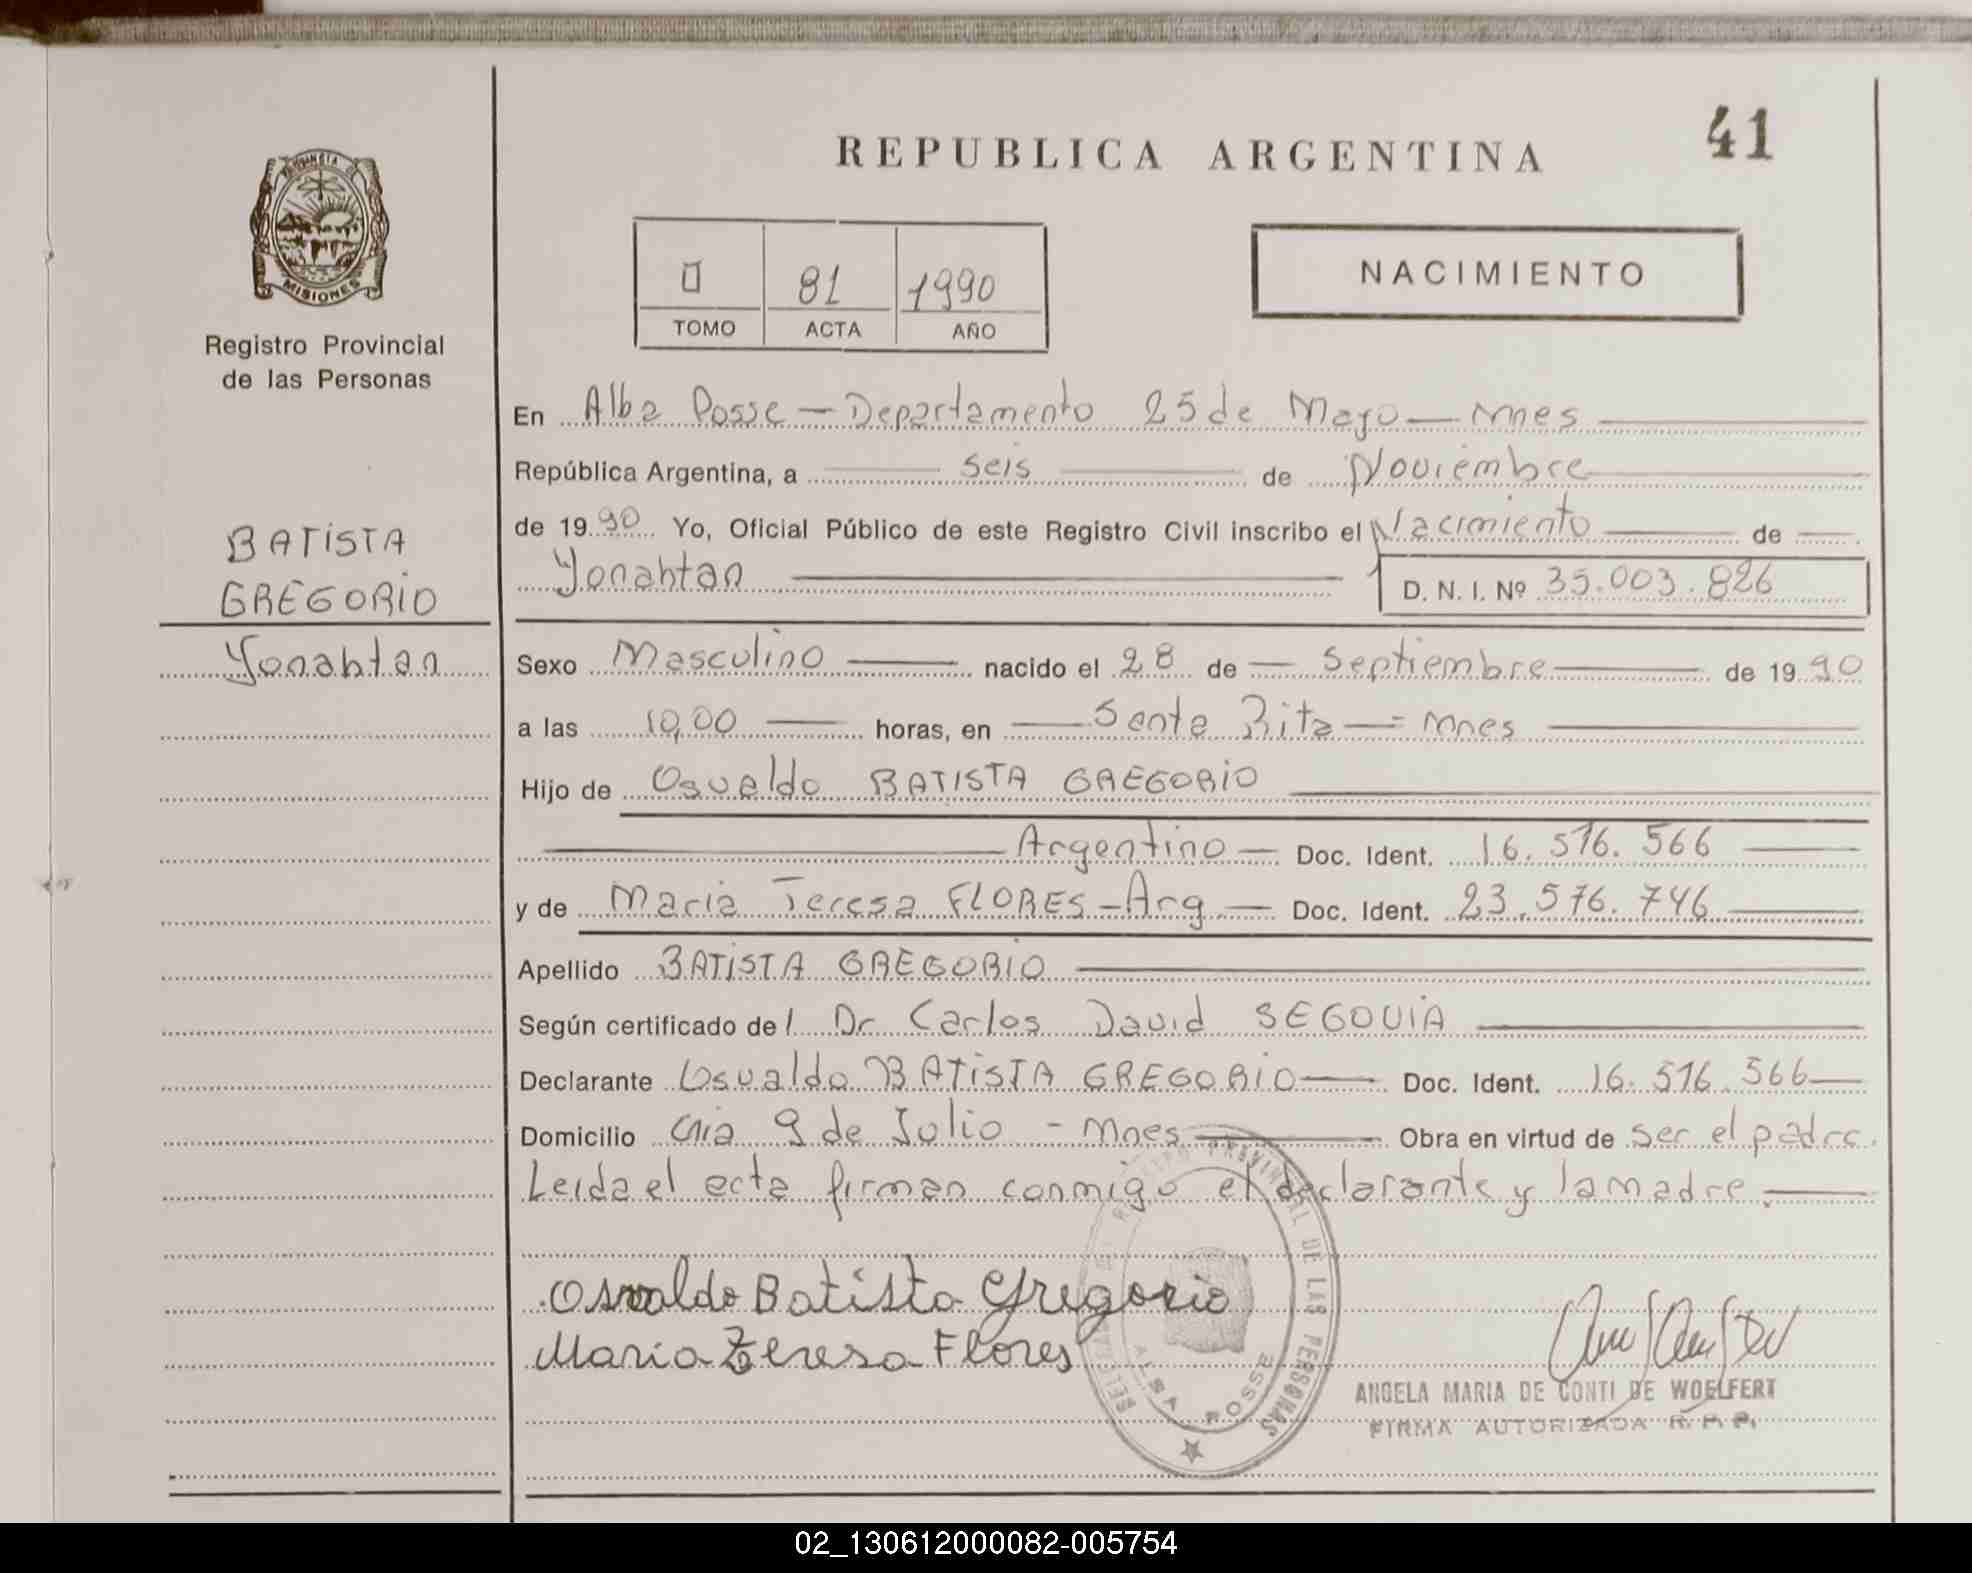 41
REPUBLICA ARGENTINA
PROVINCIA DE
MISIONES
Registro Provincial
de las Personas
81 1990
TOMO ACTA AÑO
NACIMIENTO
BATISTA
GREGORIO
Yonahtan
En Alba Posse — Departamento 25 de Mayo — Mnes
República Argentina, a seis de Noviembre
de 19 90 Yo, Oficial Público de este Registro Civil inscribo el Nacimiento de
Yonahtan D. N. I. Nº 35.003.826
Sexo Masculino nacido el 28 de Septiembre de 19 90
a las 10,00 horas, en Santa Rita — Mnes
Hijo de Osvaldo BATISTA GREGORIO
Argentino — Doc. Ident. 16.516.566
y de Maria Teresa FLORES - Arg. — Doc. Ident. 23.576.746
Apellido BATISTA GREGORIO
Según certificado del Dr Carlos David SEGOVIA
Declarante Osvaldo BATISTA GREGORIO — Doc. Ident. 16.516.566
Domicilio Cnia 9 de Julio - Mnes — Obra en virtud de ser el padre.
Leida el acta firman conmigo el declarante y la madre.
Osvaldo Batista Gregorio
Maria Teresa Flores
REGISTRO PROVINCIAL DE LAS PERSONAS
ALBA POSSE
ANGELA MARIA DE CONTI DE WOELFERT
FIRMA AUTORIZADA R. P. P.
02_130612000082-005754